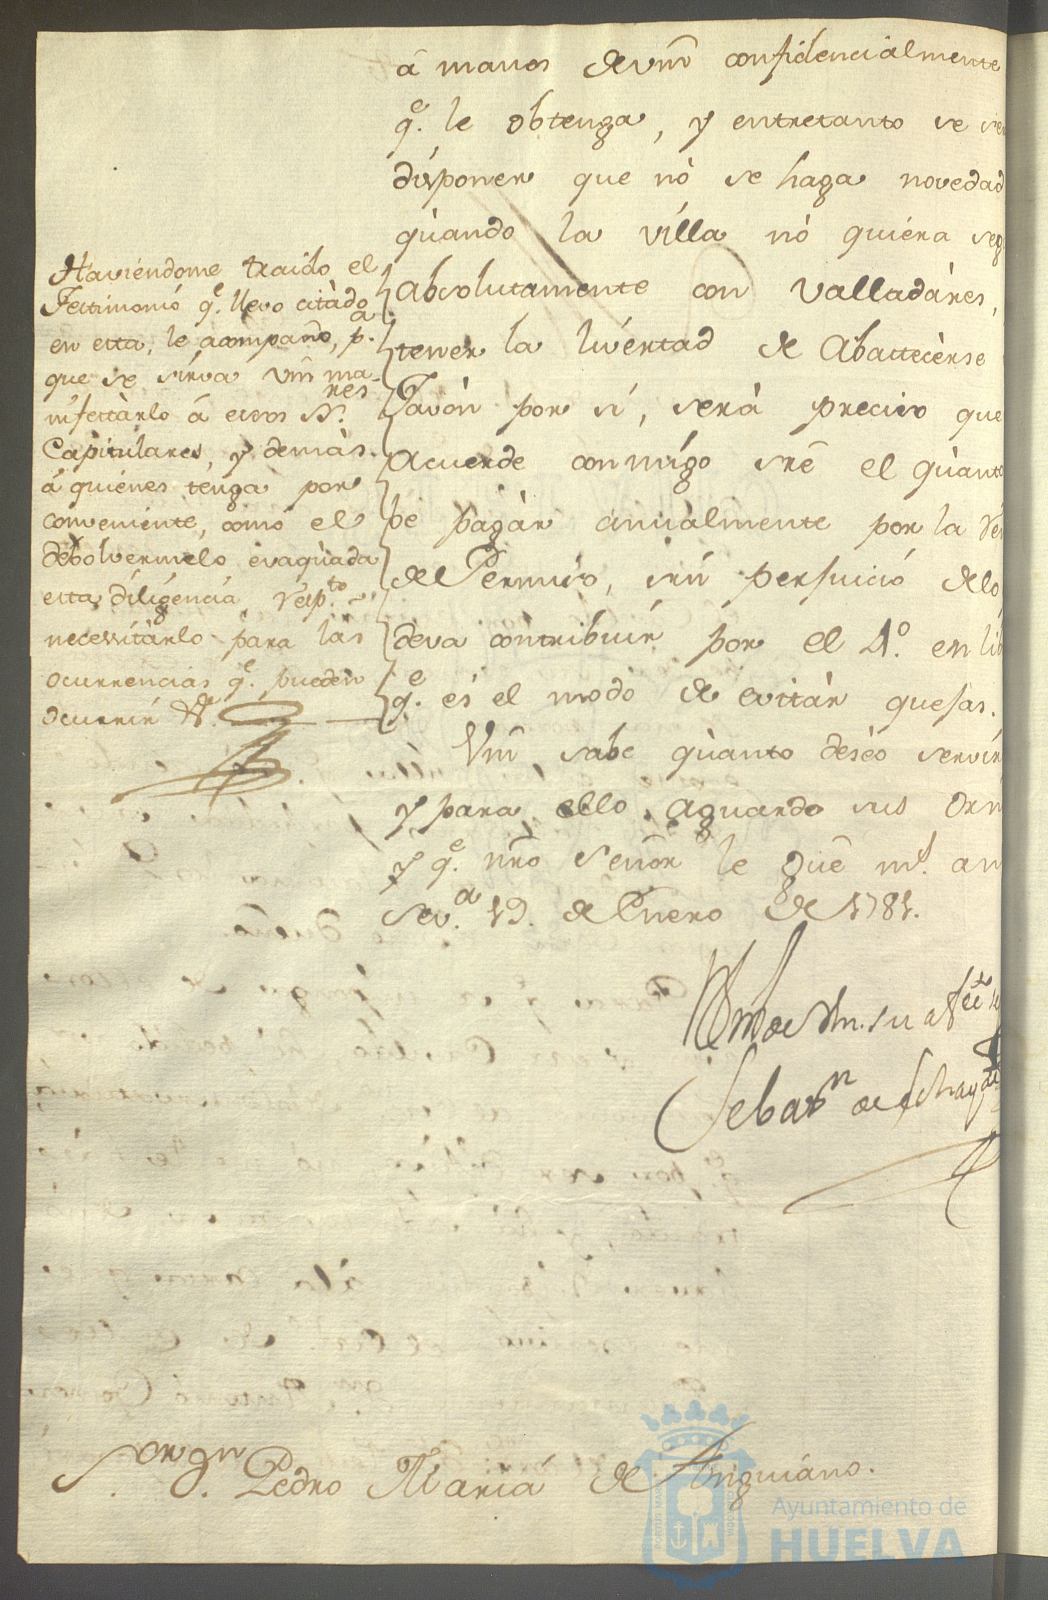 á manos de Vm̃ confidencialmente
q.e le obtenga, y entretanto se
disponer que nó se haga novedad
quando la villa nó quiera
Absolutamente con Valladáres,
tener la livertad de Abastecèrse
Javòn por sí, será preciso que
Acuerde conmígo sre el quanto
pagár anualmente por la
del Permíso, sin perjuició de lo
deva contribuír por el A.o en
q.e és el modo de evitár quejas.
Vm̃ sabe quanto deséo servir
y para ello aguardo sus
y q.e nr̃o Señor le gue m.s
Sev.a 19. de Enero de 1781.
Haviéndome traído el
Testimonió q.e llevo citádo
en esta, le acompaño, p.a
que se sírva Vm̃ ma-
nifestárlo á esos SS.res
Capitulares, y demás
á quiénes tenga por
conveniente, como el
debolvermelo evaquada
esta diligéncia, resp.to
necessitárlo para las
ocurrencias q.e pueden
ocurrír
Sebas.n de
S.or D.n Pedro Mariá de Anguiáno.
Ayuntamiento de
HUELVA